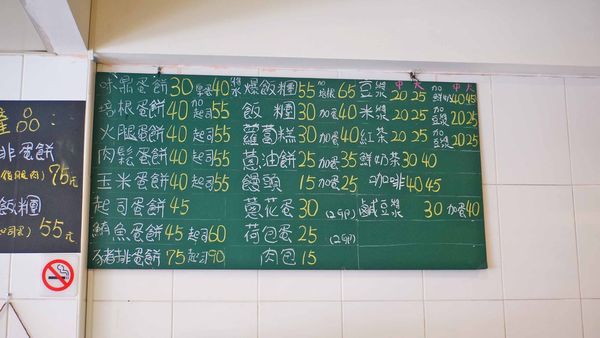 產品:
排蛋餅
75元
飯糰
55元
味鼎蛋餅30 40 爆飯糰55 加培根65 豆漿 中20 大25 加鮮奶 中40 大45
培根蛋餅40 加起司55 飯糰30 加蛋40 米漿20 25 加豆漿20 25
火腿蛋餅40 起司55 蘿蔔糕30 加蛋40 紅茶20 25 加豆漿20 25
肉鬆蛋餅40 起司55 蔥油餅25 加蛋35 鮮奶茶30 40
玉米蛋餅40 起司55 饅頭15 加蛋25 咖啡40 45
起司蛋餅45 蔥花蛋30 (2個) 鹹豆漿30 加蛋40
鮪魚蛋餅45 起司60 荷包蛋25 (2個)
豬排蛋餅75 起司90 肉包15